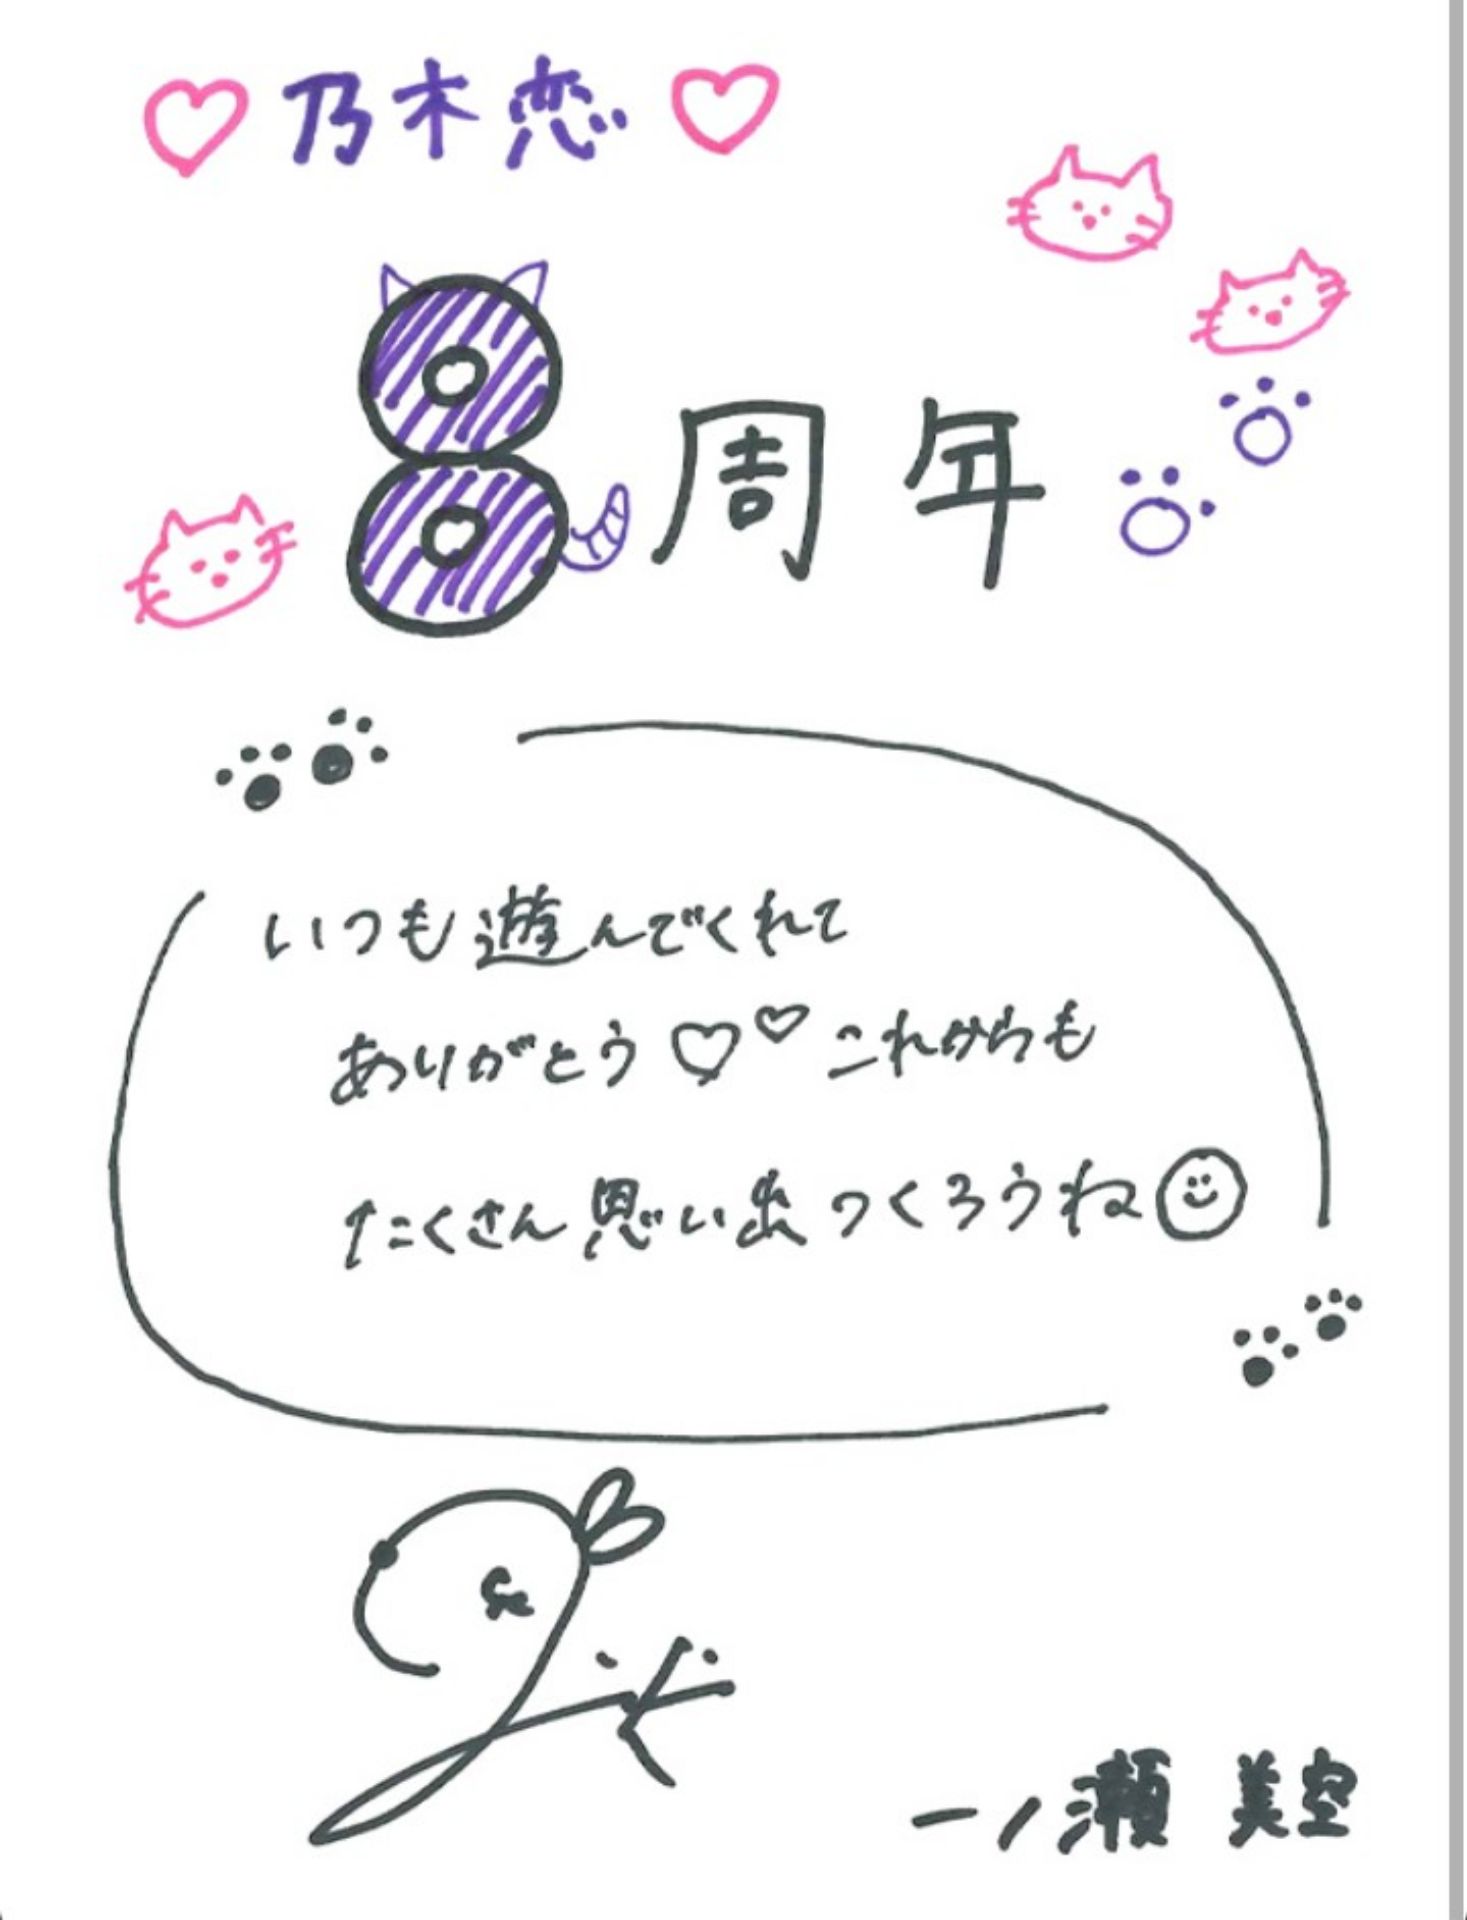 ♡乃木恋♡
8周年
いつも遊んでくれて
ありがとう♡♡これからも
たくさん思い出つくろうね☺
一ノ瀬 美空